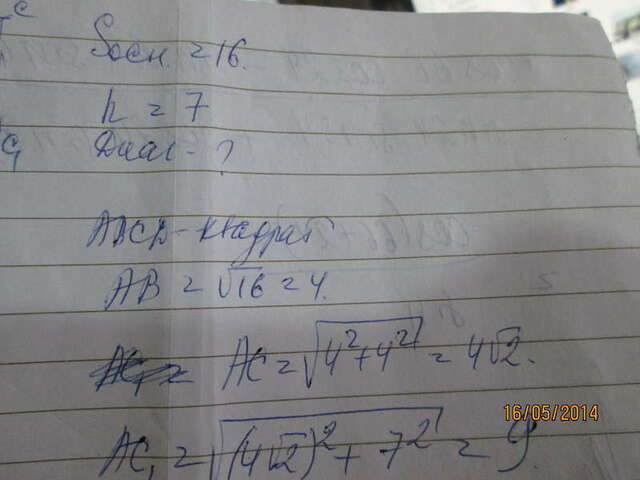 C
Sосн. = 16.
h = 7
C₁ Диаг - ?
ABCD - квадрат
AB = √16 = 4.
AC = √(4² + 4²) = 4√2.
AC₁ = √((4√2)² + 7²) = 9.
16/05/2014